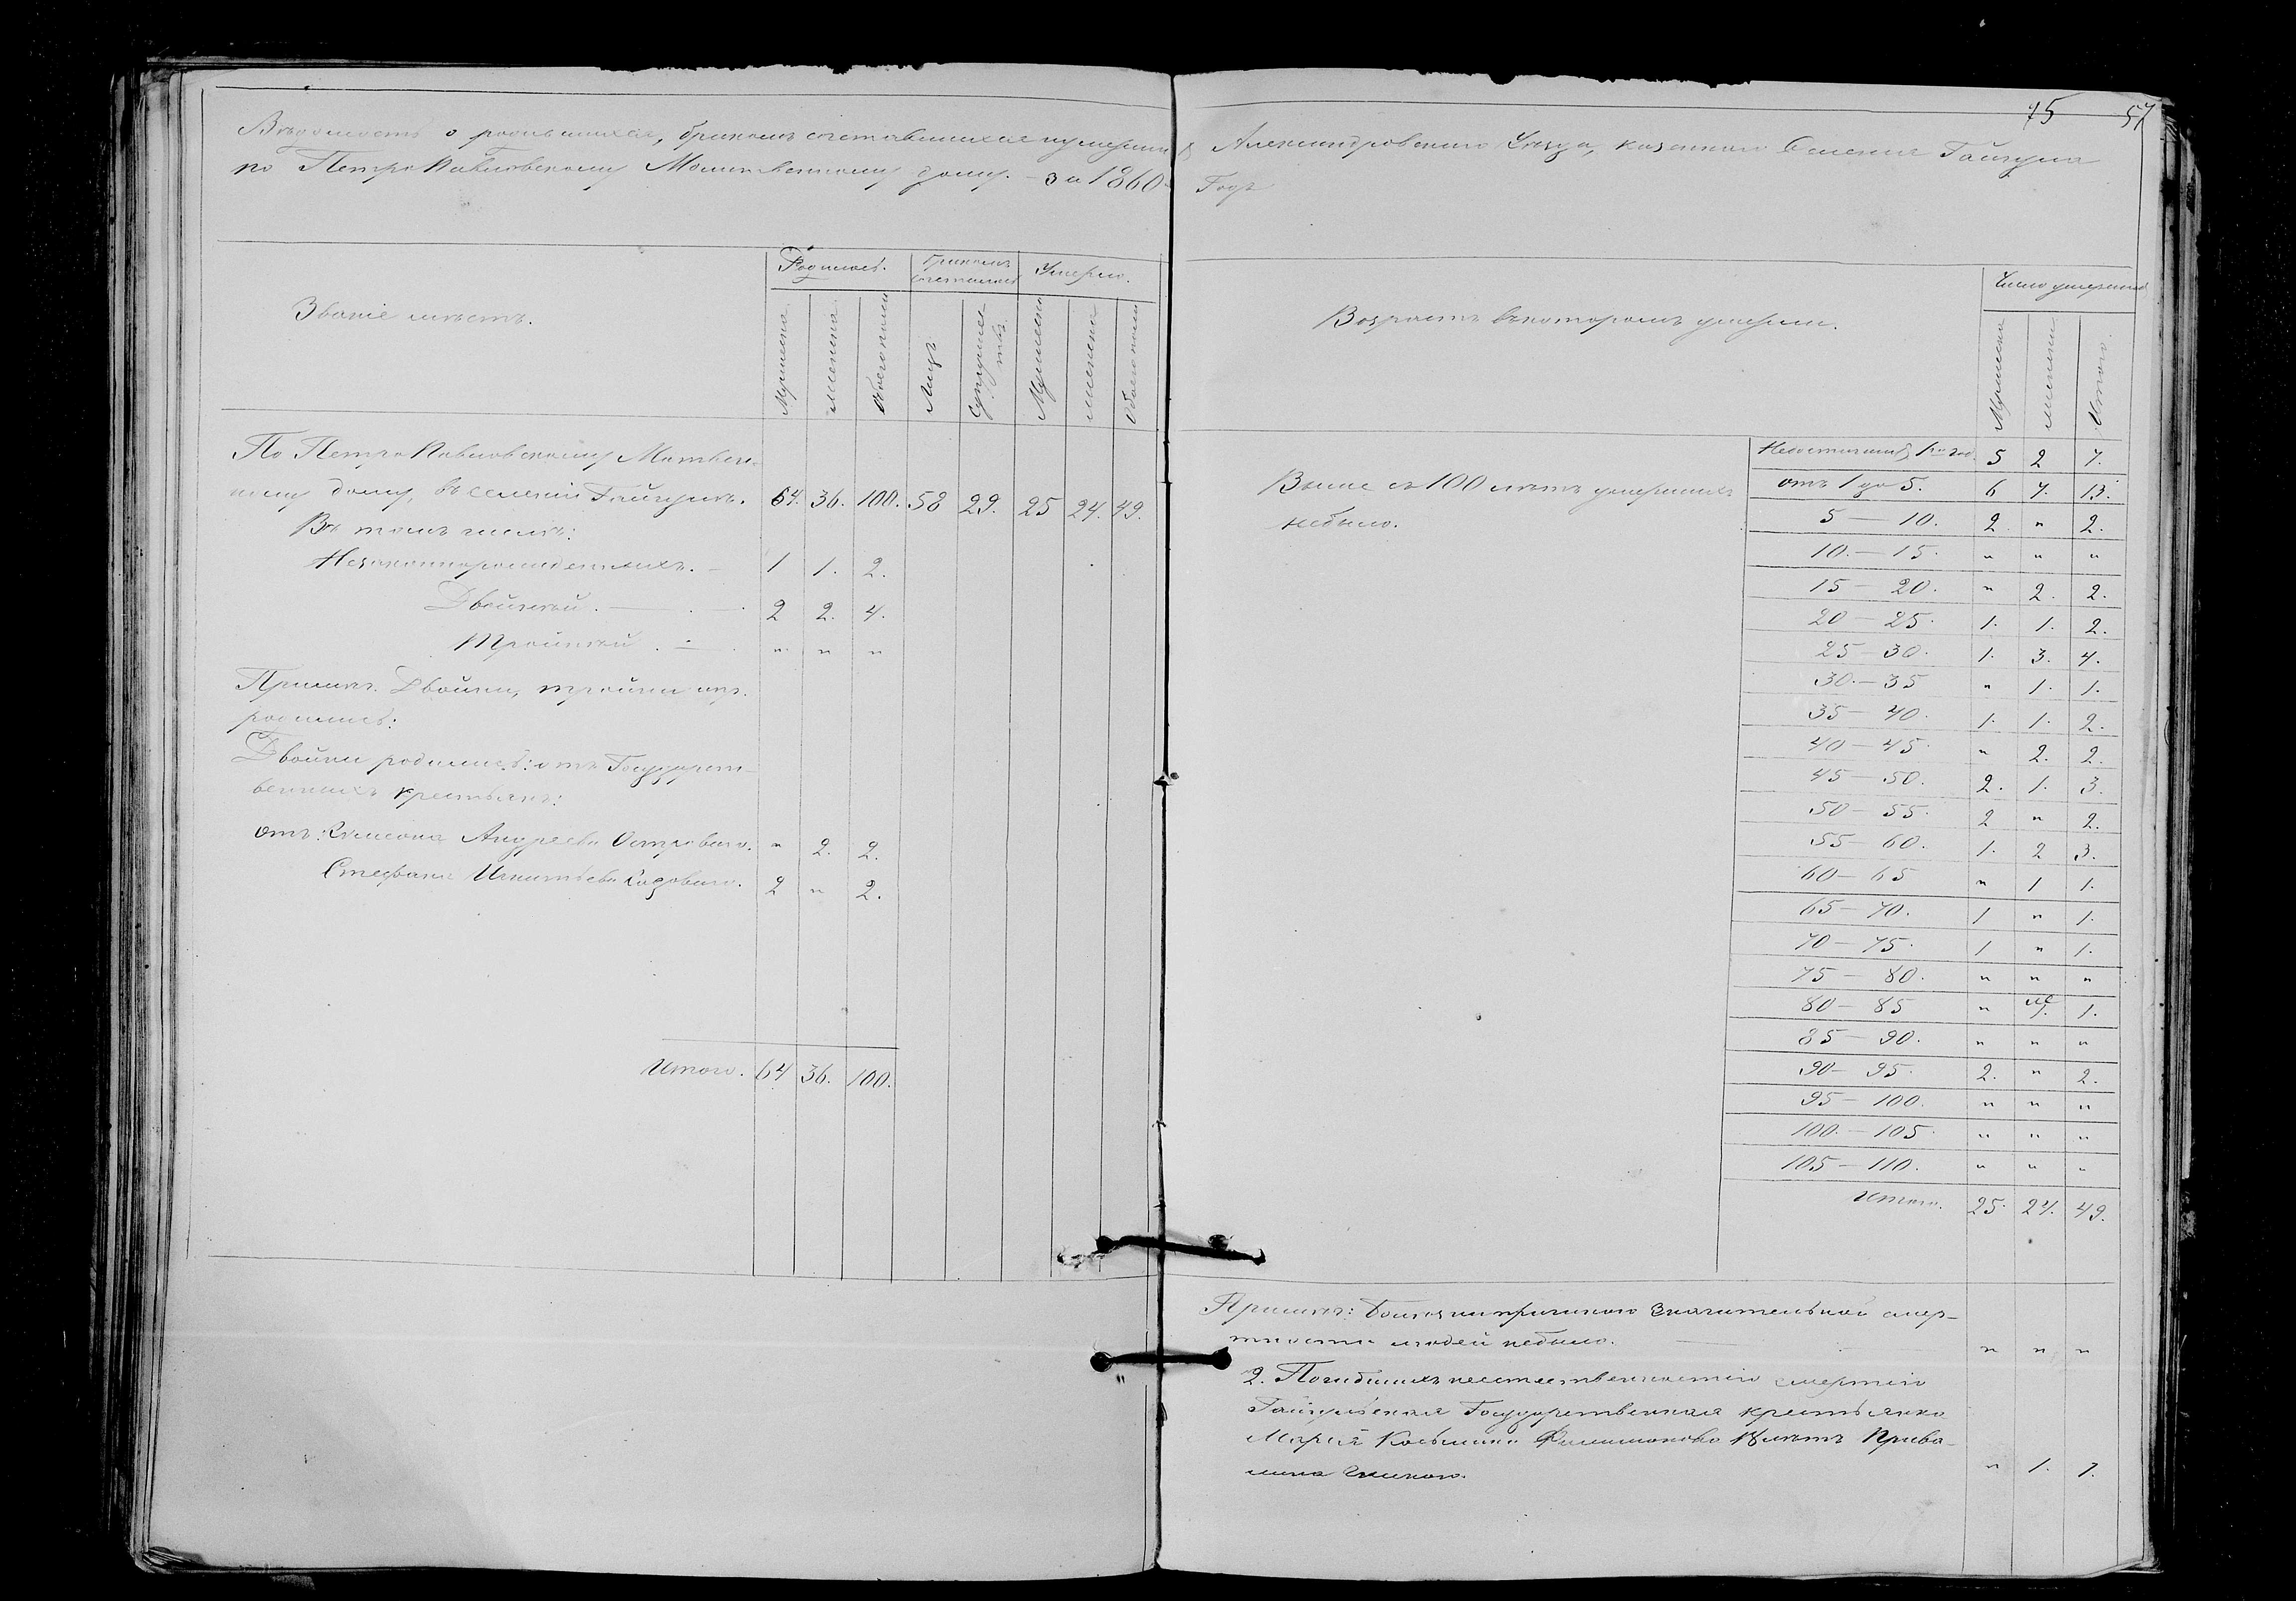 75 57
Вѣдомость о родившихся, бракомъ сочетавшихся и умершихъ Александровскаго Уѣзда, казеннаго Селенія Гайчула
по Петро Павловскому Молитвенному дому. – за 1860 Годъ
Званіе мѣстъ.
Родилось.
Бракомъ сочеталось
Умерло.
Мужеска
Женска
Обоего пола
Лицъ
Супружествъ
Мужеска
Женска
Обоего пола
По Петро Павловскому Молитвен-
ному дому, въ селеніи Гайчулѣ. 64. 36. 100. 58 29. 25 24. 49.
Въ томъ числѣ:
Незаконнорожденныхъ. – 1 1. 2.
Двойней. — 2 2. 4.
Тройней. — " " "
Примѣч. Двойни, тройни
родились:
Двойни родились: отъ Государст-
венныхъ крестьянъ:
отъ: Симеона Андреева Островаго. " 2. 2.
Стефана Игнатьева 2 " 2.
Итого. 64 36. 100.
Возрастъ въ которомъ умерли.
Число умершихъ
Мужеска
женски
Итого.
Выше съ 100 лѣтъ умершихъ
небыло.
Недостигшихъ 1го год. 5 2 7.
отъ 1 до 5. 6 7. 13.
5 — 10. 2. " 2.
10. — 15. " " "
15 — 20. " 2. 2.
20 — 25. 1. 1. 2.
25 — 30. 1. 3. 4.
30. — 35 " 1. 1.
35 — 40. 1. 1. 2.
40 — 45. " 2. 2.
45 — 50. 2. 1. 3.
50 — 55. 2 " 2.
55 — 60. 1. 2 3.
60 — 65 " 1 1.
65 — 70. 1 " 1.
70 — 75. 1 " 1.
75 — 80. " " "
80 — 85 " 1. 1.
85 — 90. " " "
90 — 95. 2. " 2.
95 — 100. " " "
100. — 105. " " "
105 — 110. " " "
Итого. 25. 24. 49.
Примѣч: Болѣзни причиною значительной смер-
тности людей небыло. — " " "
2. Погибшихъ неестественностію смертію
Гайчульская Государственная крестьянка
Марія Косьмина Филимонова лѣтъ
" 1. 1.